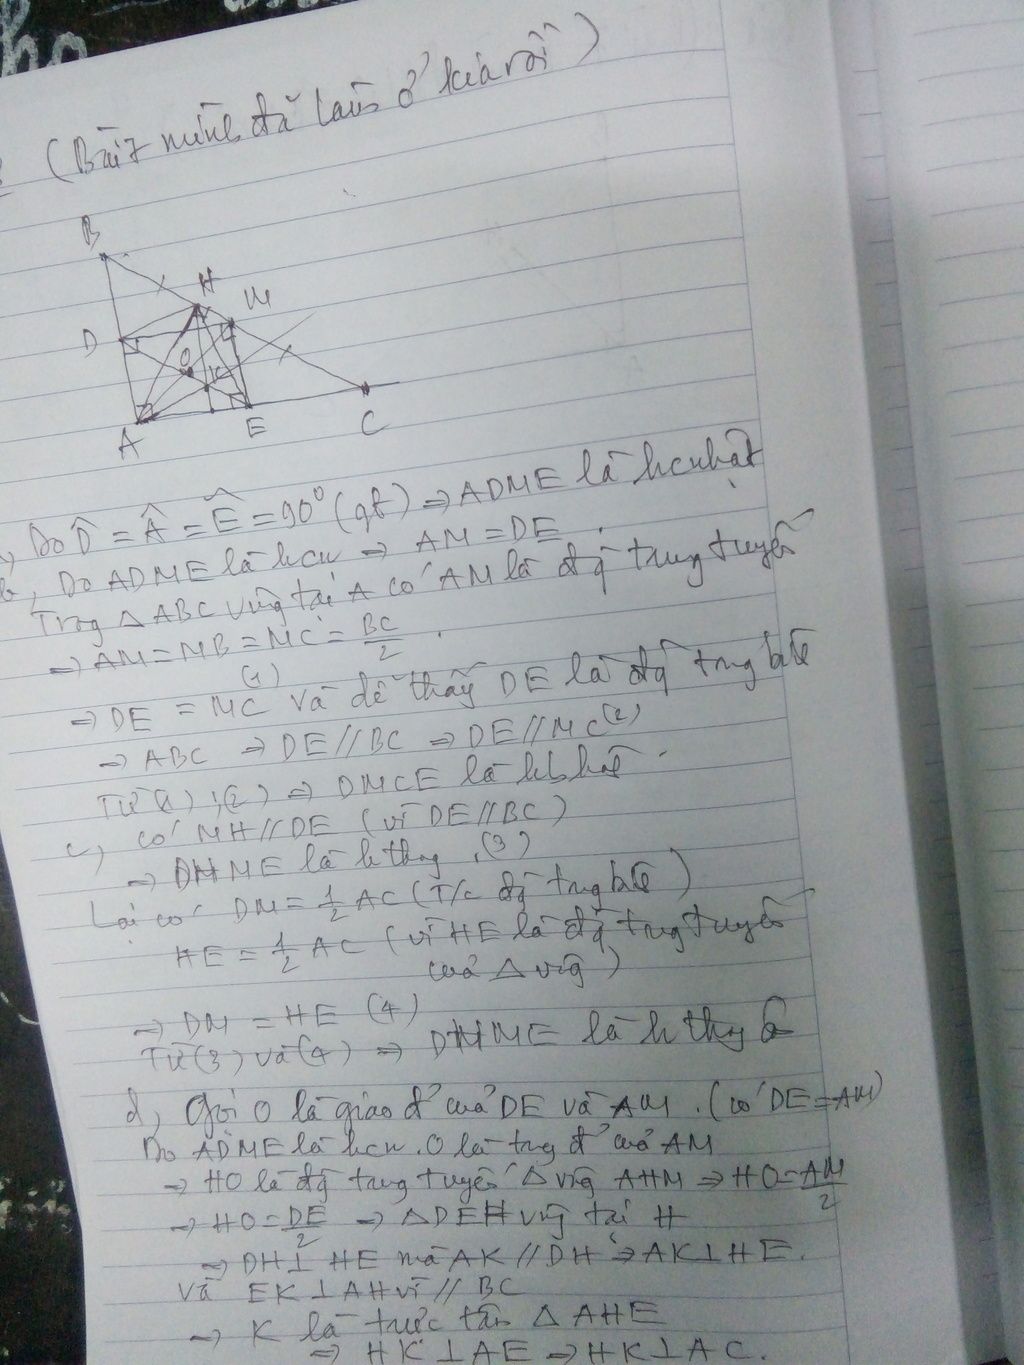 (Bài 7 mình đã làm ở kia rồi)
B
H
M
D
O
K
A
E
C
Do D̂ = Â = Ê = 90⁰ (gt) ⇒ ADME là hcnhật
b, Do ADME là hcn ⇒ AM = DE.
Trog △ ABC vuôg tại A có AM là đg trung tuyến
⇒ AM = MB = MC = BC/2.
⇒ DE = MC (1) và dễ thấy DE là đg trug bình
⇒ ABC ⇒ DE // BC ⇒ DE // MC (2)
Từ (1), (2) ⇒ DMCE là hbhành.
c, có MH // DE (vì DE // BC)
⇒ DHME là hthag. (3)
Lại có DM = 1/2 AC (T/c đg trug bình)
HE = 1/2 AC (vì HE là đg trug tuyến
của △ vuôg)
⇒ DM = HE (4)
Từ (3) và (4) ⇒ DHME là hthag cân
d, Gọi O là giao đ' của DE và AM. (có DE = AM)
Do ADME là hcn. O là trug đ' của AM
⇒ HO là đg trung tuyến △ vuôg AHM ⇒ HO = AM/2
⇒ HO = DE/2 ⇒ △DEH vuôg tại H
⇒ DH ⊥ HE mà AK // DH ⇒ AK ⊥ HE.
và EK ⊥ AH vì // BC
⇒ K là trực tâm △ AHE
⇒ HK ⊥ AE ⇒ HK ⊥ AC.